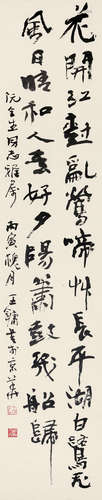 花開紅樹亂鶯啼艸長平湖白鷺飛
風日晴和人意好夕陽簫鼓幾船歸
同志雅屬 丙寅月王鏞書於京華